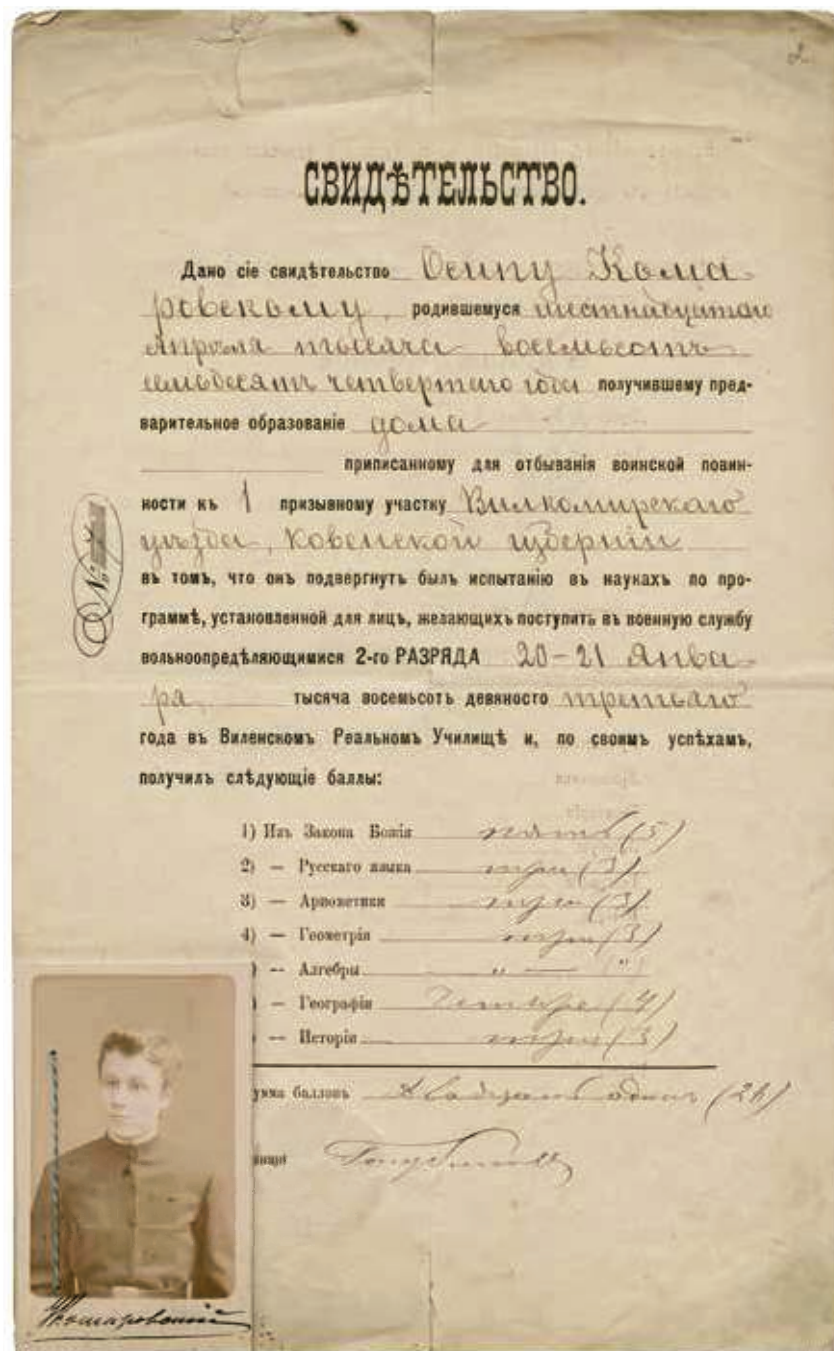 2
СВИДѢТЕЛЬСТВО.
Дано сіе свидѣтельство Осипу Кома
ровскому, родившемуся шестнадцатаго
Апрѣля тысяча восемьсотъ
семьдесятъ четвертаго года получившему пред-
варительное образованіе дома
приписанному для отбыванія воинской повин-
ности къ 1 призывному участку Вилкомирскаго
уѣзда, Ковенской губерніи
въ томъ, что онъ подвергнутъ былъ испытанію въ наукахъ по про-
граммѣ, установленной для лицъ, желающихъ поступить въ военную службу
вольноопредѣляющимися 2-го РАЗРЯДА 20-21 Янва-
ря, тысяча восемьсотъ девяносто третьяго
года въ Виленскомъ Реальномъ Училищѣ и, по своимъ успѣхамъ,
получилъ слѣдующіе баллы:
№
1) Изъ Закона Божія пять (5)
2) — Русскаго языка три (3)
3) — Ариѳметики три (3)
4) — Геометріи три (3)
) — Алгебры " — (")
) — Географіи Четыре (4)
— Исторіи три (3)
умма балловъ Двадцать одинъ (21)
Комаровскій